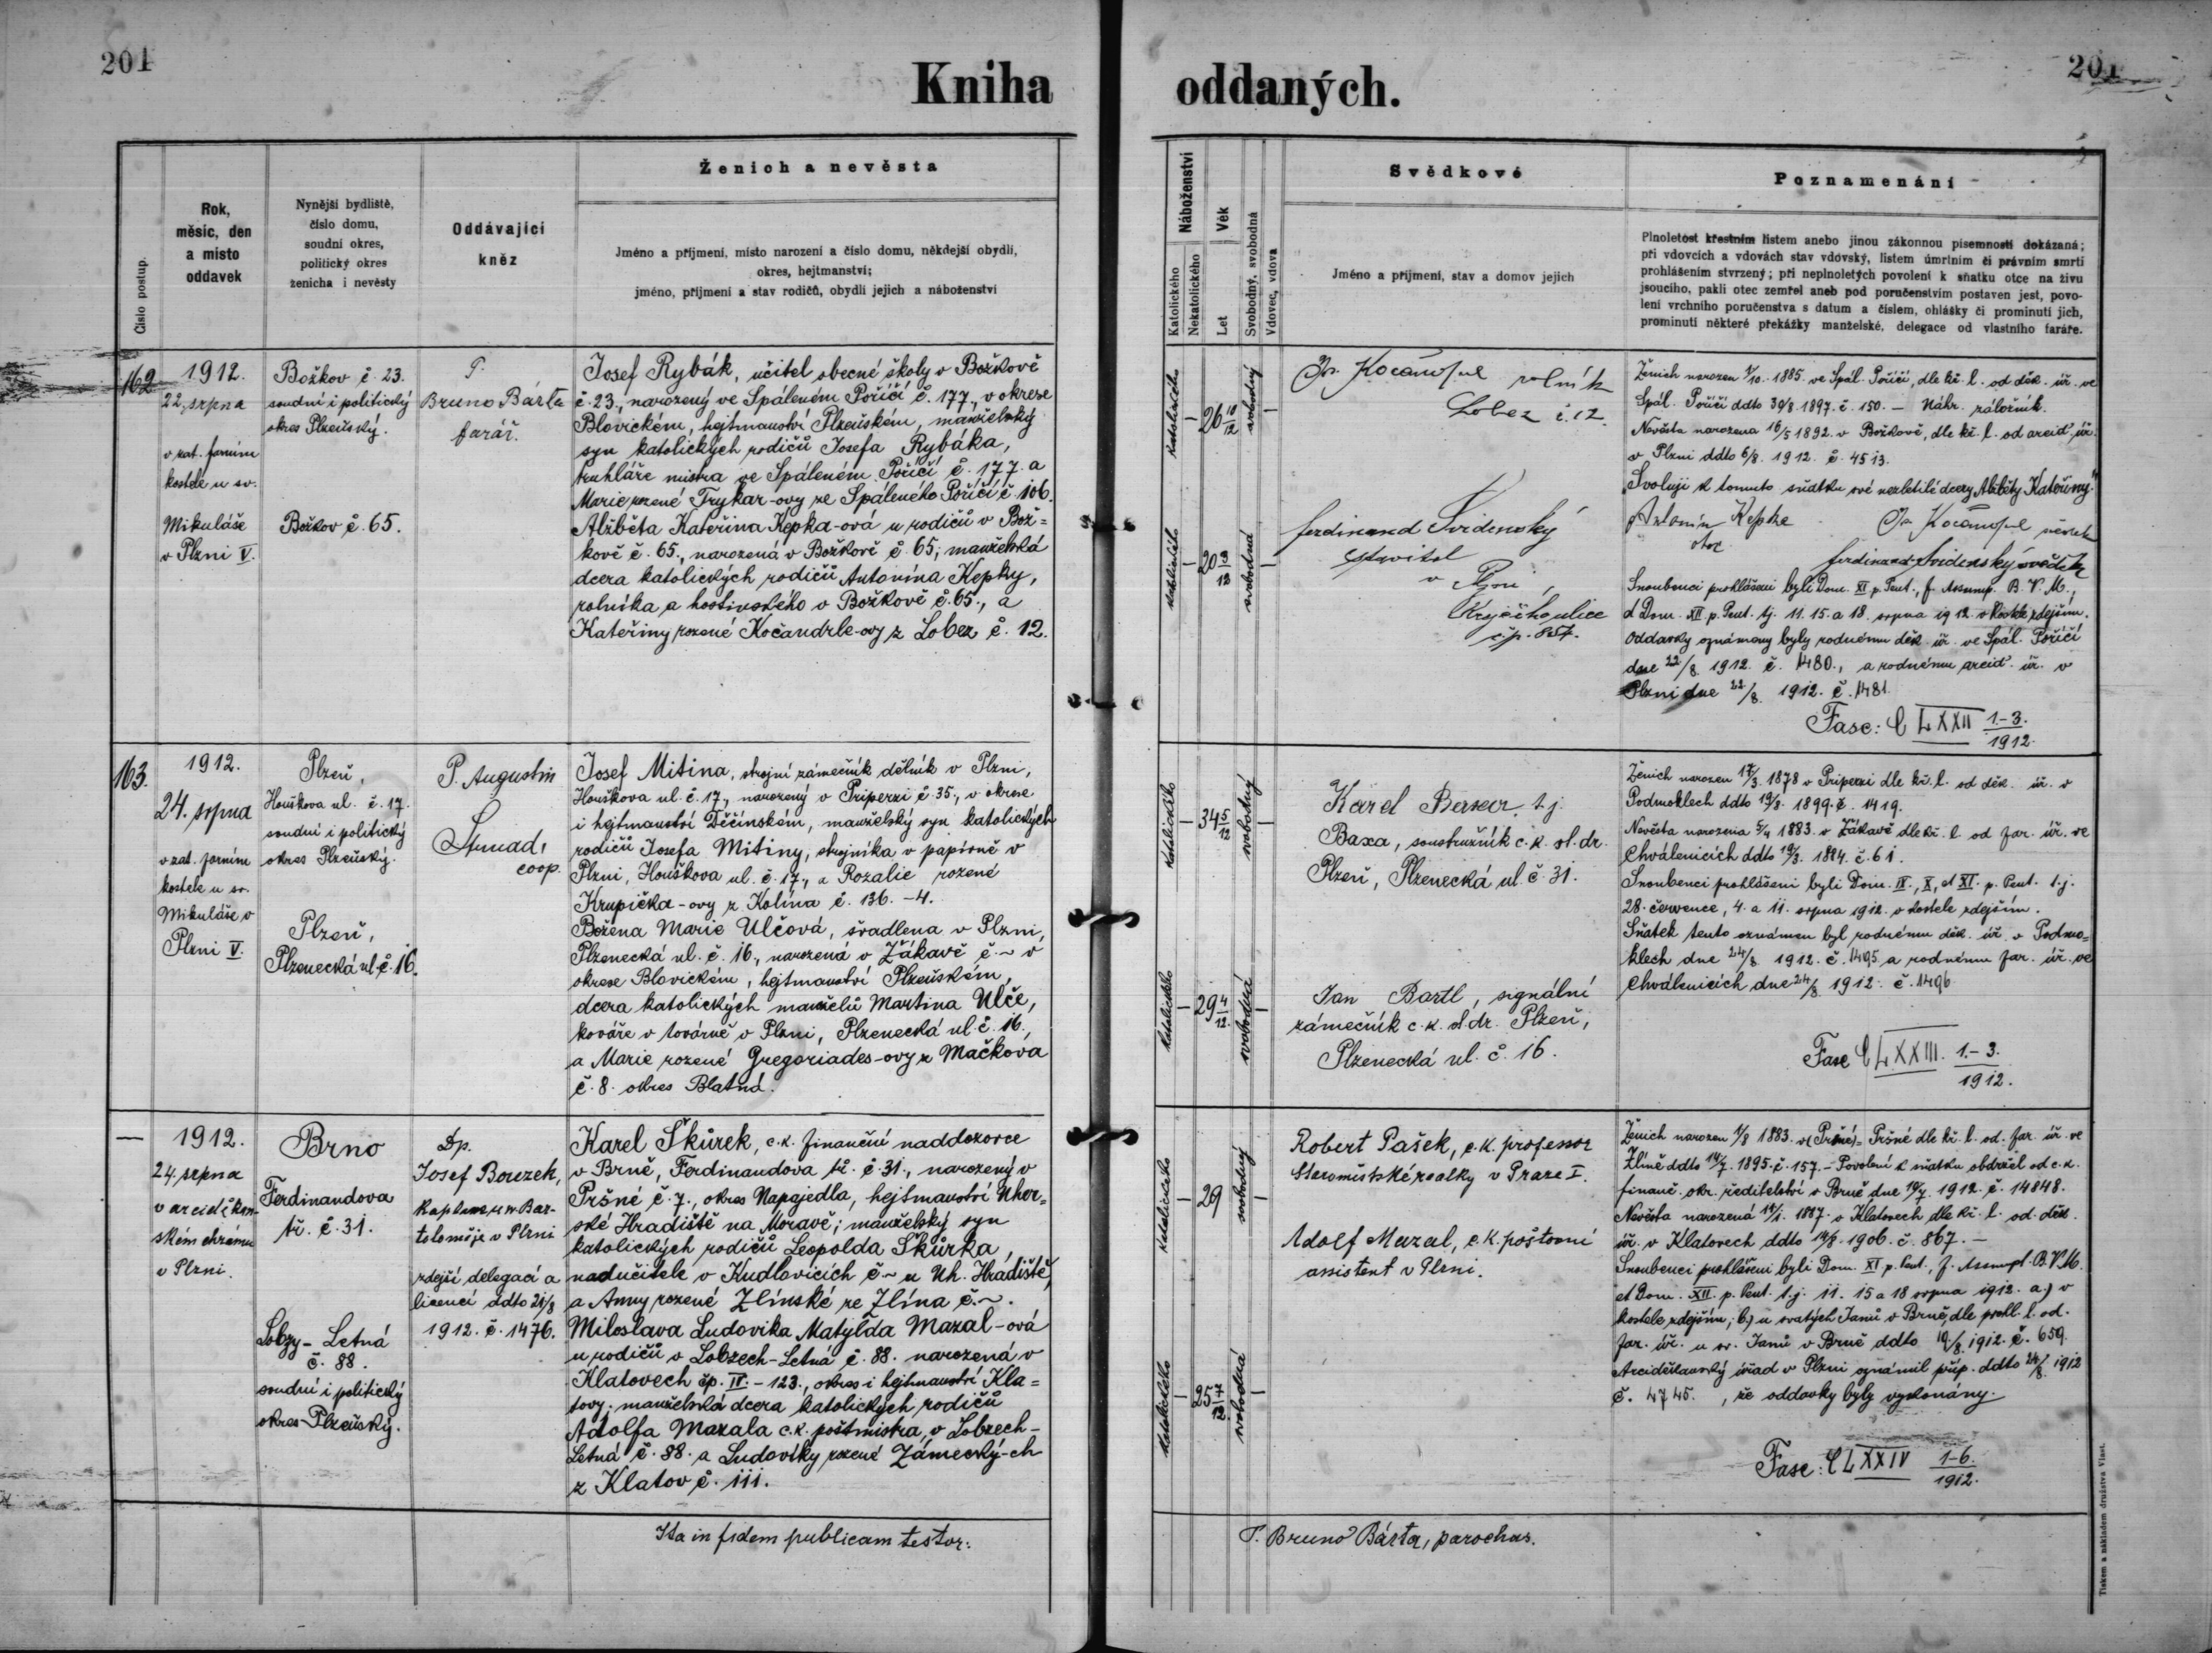 201
Kniha
oddaných.
201
Číslo postup.
Rok,
měsíc, den
a místo
oddavek
Nynější bydliště,
číslo domu,
soudní okres,
politický okres
ženicha i nevěsty
Oddávající
kněz
Ženich a nevěsta
Jméno a příjmení, místo narození a číslo domu, někdejší obydlí,
okres, hejtmanství;
jméno, příjmení a stav rodičů, obydlí jejich a náboženství
Náboženství
Katolického
Nekatolického
Věk
Let
Svobodný, svobodná
Vdovec, vdova
Svědkové
Jméno a příjmení, stav a domov jejich
Poznamenání
Plnoletost křestním listem anebo jinou zákonnou písemností dokázaná;
při vdovcích a vdovách stav vdovský, listem úmrlním či právním smrti
prohlášením stvrzený; při neplnoletých povolení k sňatku otce na živu
jsoucího, pakli otec zemřel aneb pod poručenstvím postaven jest, povo-
lení vrchního poručenstva s datum a číslem, ohlášky či prominutí jich,
prominutí některé překážky manželské, delegace od vlastního faráře.
162
1912.
22. srpna
v zat. farním
kostele u sv.
Mikuláše
v Plzni V.
Božkov č. 23.
soudní i politický
okres Plzeňský.
Božkov č. 65.
P.
Bruno Bárta
farář.
Josef Rybák, učitel obecné školy v Božkově
č. 23., narozený ve Spáleném Poříčí č. 177., v okrese
Blovickém, hejtmanství Plzeňském, manželský
syn katolických rodičů Josefa Rybáka,
truhláře mistra ve Spáleném Poříčí č. 177. a
Marie rozené Trykar-ovy ze Spáleného Poříčí č. 106.
Alžběta Kateřina Kepka-ová u rodičů v Bož=
kově č. 65., narozená v Božkově č. 65; manželská
dcera katolických rodičů Antonína Kepky,
rolníka a hostinského v Božkově č. 65., a
Kateřiny rozené Kočandrle-ovy z Lobez č. 12.
katolického
– 26 10/12
svobodný
–
katolického
– 20 3/12
svobodná
–
rolník
Lobez č. 12.
Ferdinand Svidenský
stavitel
v Plzni,
čp. 857.
Ženich narozen 1/10. 1885. ve Spál. Poříčí, dle kř. l. od děk. úř. ve
Spál. Poříčí ddto 30/8. 1897. č. 150. – Náhr. záložník.
Nevěsta narozena 16/5 1892. v Božkově, dle kř. l. od arcid. úř.
v Plzni ddto 6/8. 1912. č. 4513.
„Svoluji k tomuto sňatku své nezletilé dcery Alžběty Kateřiny."
Antonín Kepka
otec
Ferdinand Svidenský svědek
Snoubenci prohlášeni byli Dom. XI p. Pent., f. Assump. B. V. M.,
et Dom. XII p. Pent. tj. 11. 15. a 18. srpna 1912. v kostele zdejším.
Oddavky oznámeny byly rodnému děk. úř. ve Spál. Poříčí
dne 22/8. 1912. č. 1480., a rodnému arcid. úř. v
Plzni dne 22/8. 1912. č. 1481.
Fasc: C LXXII 1.-3./1912.
163.
1912.
24. srpna
v zat. farním
kostele u sv.
Mikuláše v
Plzni V.
Plzeň,
Houškova ul. č. 17.
soudní i politický
okres Plzeňský.
Plzeň,
Plzenecká ul. č. 16.
P. Augustin
coop.
Josef Mitina, strojní zámečník dělník v Plzni,
Houškova ul. č. 17., narozený v Priperzi č. 35., v okrese
i hejtmanství Děčínském, manželský syn katolických
rodičů Josefa Mitiny, strojníka v papírně v
Plzni, Houškova ul. č. 17., a Rozalie rozené
Krupička-ovy z Kolína č. 136. -4.
Božena Marie Ulčová, švadlena v Plzni,
Plzenecká ul. č. 16., narozená v Žákavě č. ~ v
okrese Blovickém, hejtmanství Plzeňském,
dcera katolických manželů Martina Ulče,
kováře v továrně v Plzni, Plzenecká ul. č. 16.,
a Marie rozené Gregoriades-ovy z Mačkova
č. 8. okres Blatná.
katolického
– 34 5/12
svobodný
–
katolického
– 29 4/12.
svobodná
–
Karel t.j.
Baxa, soustružník c.k. st. dr.
Plzeň, Plzenecká ul. č. 31.
Jan Bartl, signální
zámečník c.k. st. dr. Plzeň,
Plzenecká ul. č. 16.
Ženich narozen 17/3. 1878 v Priperzi dle kř. l. od děk. úř. v
Podmoklech ddto 19/8. 1899. č. 1419.
Nevěsta narozena 5/4 1883. v Žákavě dle kř. l. od far. úř. ve
Chválenicích ddto 19/3. 1884. č. 61.
Snoubenci prohlášeni byli Dom. IX., X., et XI. p. Pent. t.j.
28. července, 4. a 11. srpna 1912. v kostele zdejším.
Sňatek tento oznámen byl rodnému děk. úř. v Podmo=
klech dne 24/8 1912. č. 1495 a rodnému far. úř. ve
Chválenicích dne 24/8 1912. č. 1496.
Fasc C LXXIII. 1.-3./1912.
—
1912.
24. srpna
v arciděkan-
ském chrámu
v Plzni.
Brno
Ferdinandova
tř. č. 31.
Lobzy-Letná
č. 88.
soudní i politický
okres Plzeňský.
Dp.
Josef Bouzek,
kaplan u sv. Bar-
toloměje v Plzni
zdejší delegací a
licencí ddto 21/8
1912. č. 1476.
Karel Škůrek, c.k. finanční naddozorce
v Brně, Ferdinandova tř. č. 31., narozený v
Pršné č. 7., okres Napajedla, hejtmanství Uher=
ské Hradiště na Moravě; manželský syn
katolických rodičů Leopolda Škůrka,
nadučitele v Kudlovicích č ~ u Uh. Hradiště,
a Anny rozené Zlínské ze Zlína č. ~.
Miloslava Ludovika Matylda Mazal-ová
u rodičů v Lobzech-Letná č. 88. narozená v
Klatovech čp. IV.-123., okres i hejtmanství Kla=
tovy; manželská dcera katolických rodičů
Adolfa Mazala c.k. poštmistra, v Lobzech-
Letná č. 88. a Ludoviky rozené Zámecký-ch
z Klatov č. 111.
katolického
– 29
svobodný
–
katolického
– 25 7/12
svobodná
–
Robert Pašek, c.k. professor
Staroměstské realky v Praze I.
Adolf Mazal, c.k. poštovní
assistent v Plzni.
Ženich narozen 1/8 1883. v (Pršné)= Pršné dle kř. l. od. far. úř. ve
Zlíně ddto 14/7. 1895. č. 157. – Povolení k sňatku obdržel od c.k.
finanč. okr. ředitelství v Brně dne 19/7. 1912. č. 14848.
Nevěsta narozená 14/1. 1887. v Klatovech dle kř. l. od. děk.
úř. v Klatovech ddto 14/8. 1906. č. 867. –
Snoubenci prohlášeni byli Dom. XI p. Pent., f. Assumpt. B.V.M.
et Dom. XII. p. Pent. t.j. 11. 15 a 18 srpna 1912. a.) v
kostele zdejším; b.) u svatých Janů v Brně, dle prohl. l. od.
far. úř. u sv. Janů v Brně ddto 19./8. 1912. č. 659.
Arciděkanský úřad v Plzni oznámil příp. ddto 24/8. 1912
č. 4745. , že oddavky byly vykonány.
Fasc: C LXXIV 1-6./1912.
Ita in fidem publicam testor:
P. Bruno Bárta, parochus.
Tiskem a nákladem družstva Vlast.